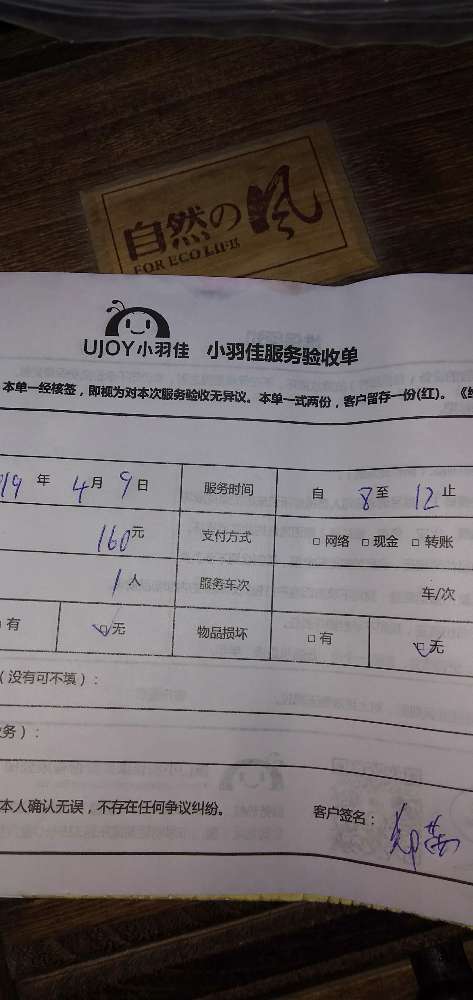 自然の風
FOR ECO LIFE
UJOY小羽佳 小羽佳服务验收单
本单一经核签，即视为对本次服务验收无异议。本单一式两份，客户留存一份(红)。
19年4月9日 服务时间 自8至12止
160元 支付方式 □网络 □现金 □转账
1人 服务车次 车/次
有 □无 物品损坏 □有 □无
（没有可不填）：
务）：
本人确认无误，不存在任何争议纠纷。 客户签名：